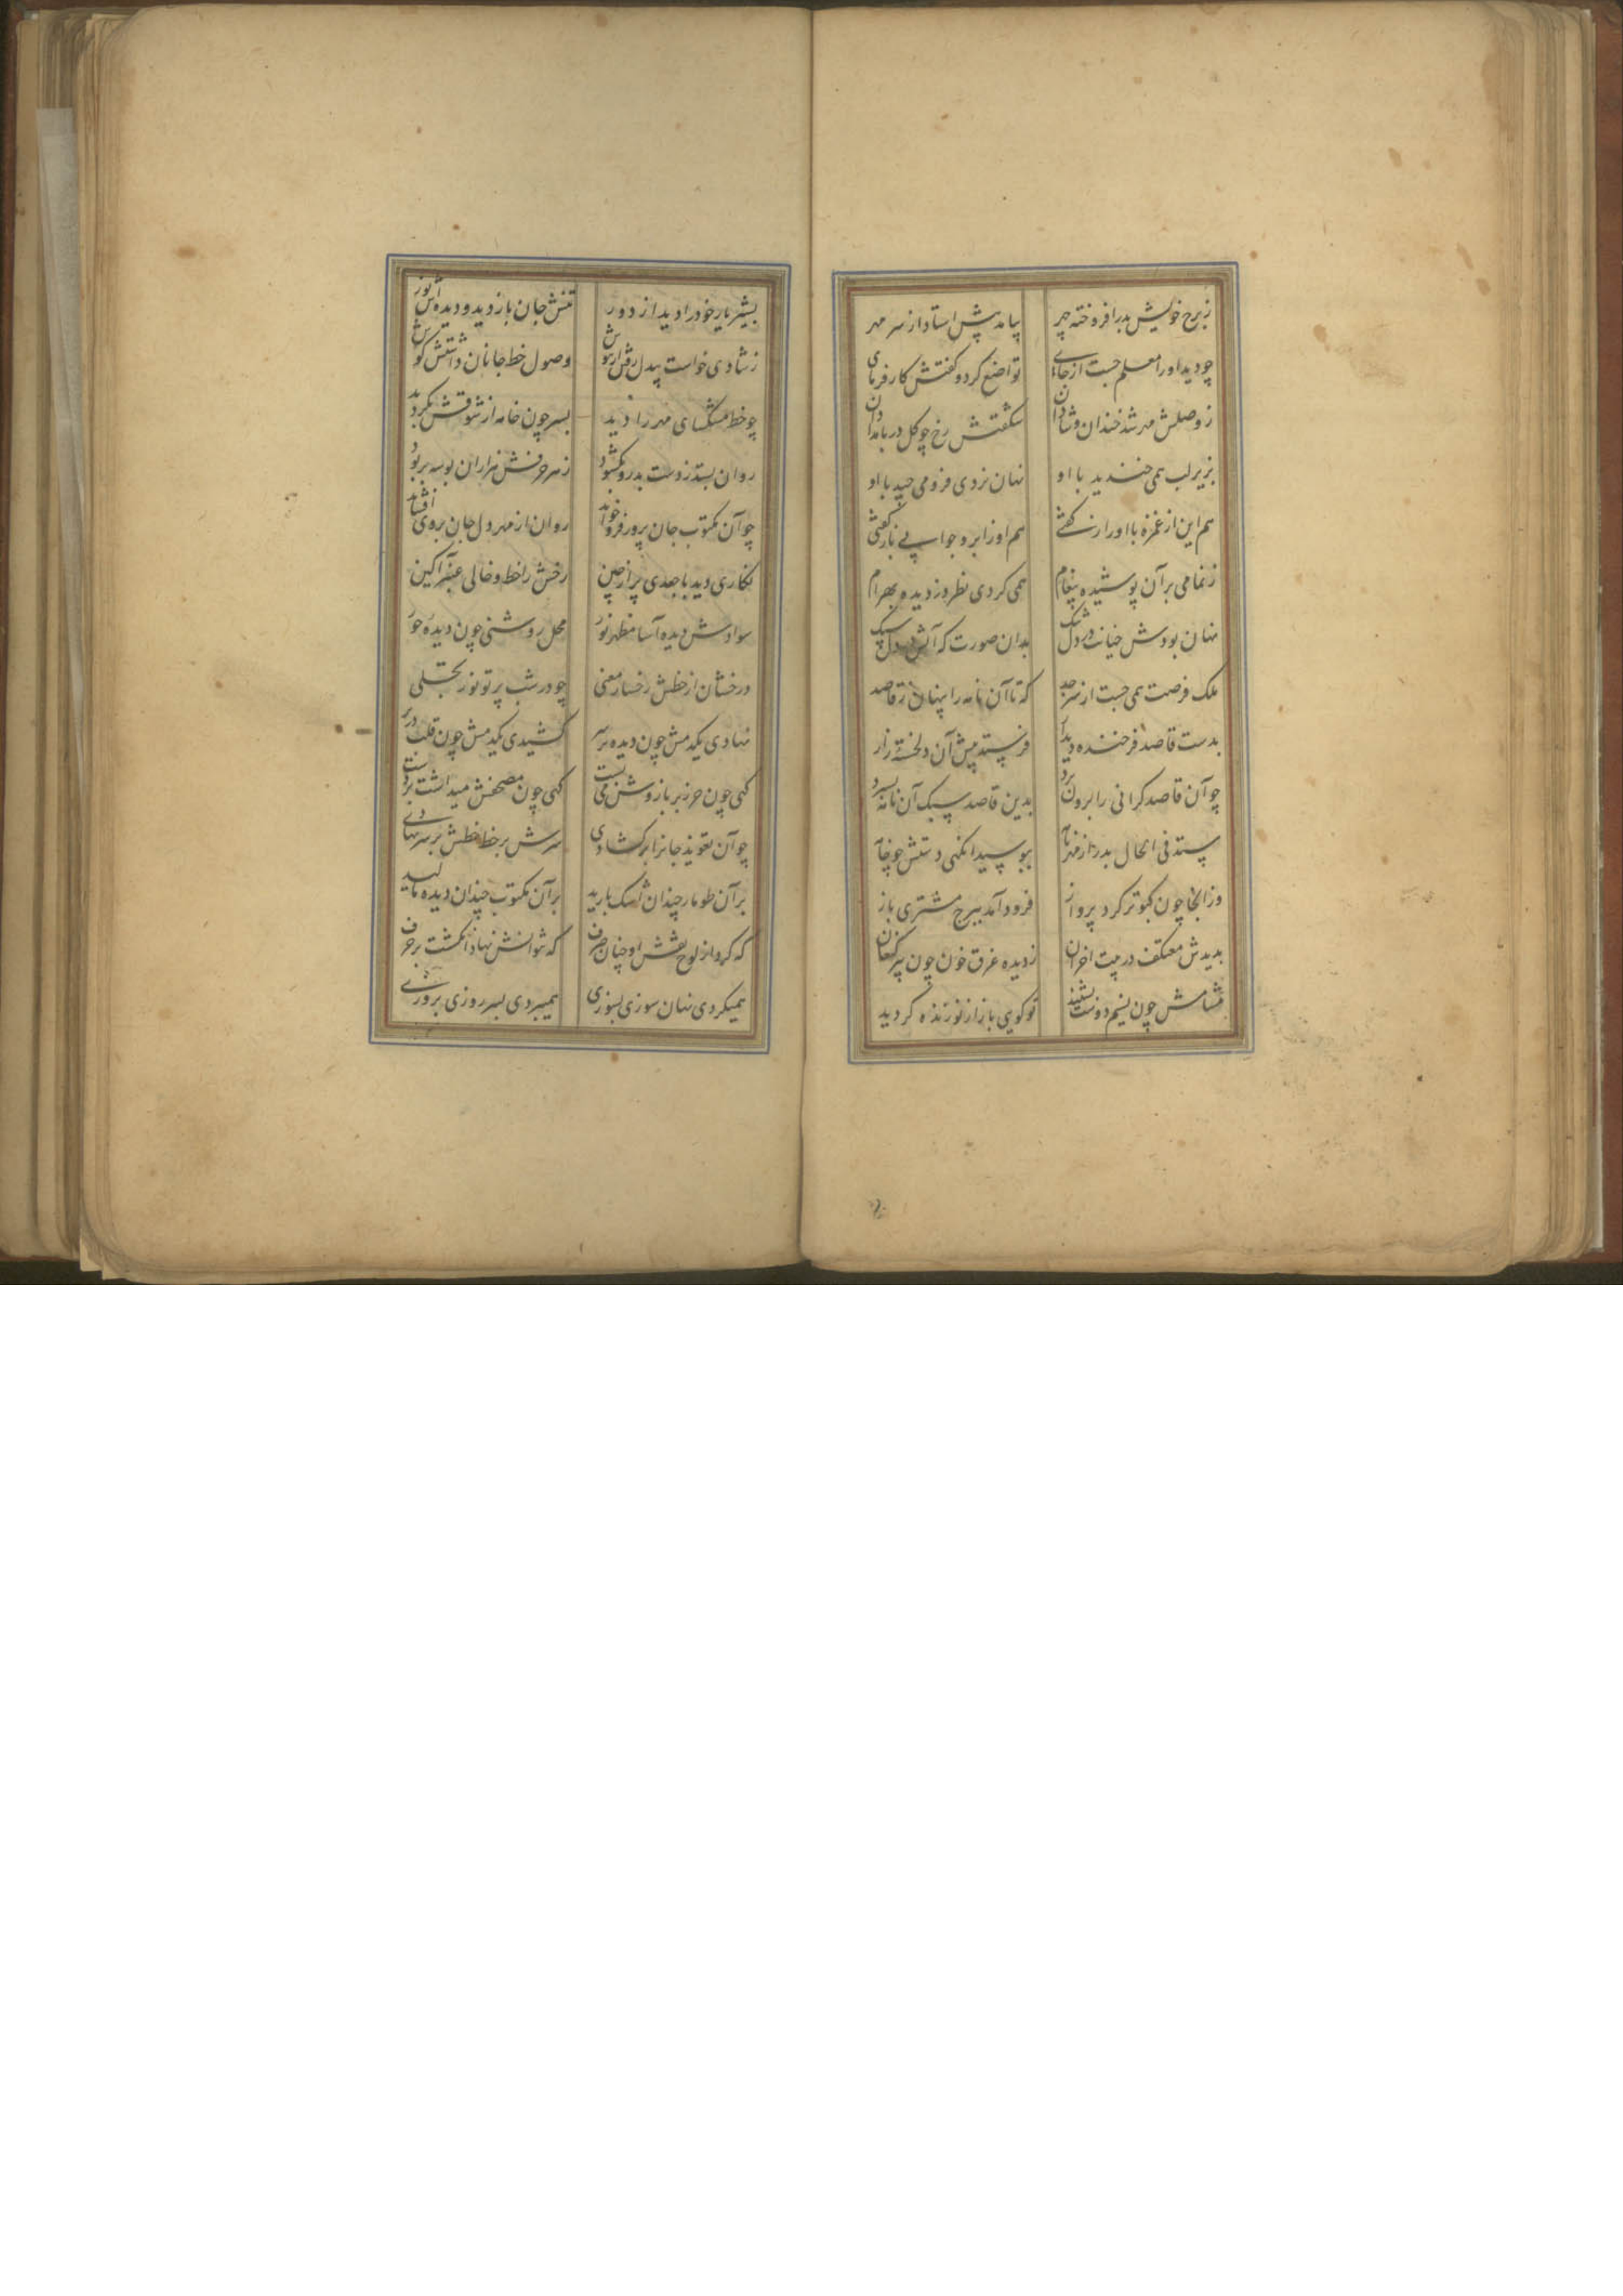 ز برج خویش بدر افروخته چهر
بیامد پیش استاد از سر مهر
چو دید او را معلم جست از جای
تواضع کرد و گفتش کار فرمای
ز وصلش مهر شد خندان و شادان
شکفتش رخ چو گل در بامدادان
بزیر لب همی خندید با او
نهان نردی فرو می چید با او
هم این از غمزه با او راز گفتی
هم او ز ابرو جوابی باز گفتی
ز نمامی بر آن پوشیده پیغام
همی کردی نظر دزدیده بهرام
نهان بودش خیانت در دل تنگ
بدان صورت که آتش در دل سنگ
ملک فرصت همی جست از مراصد
که تا آن نامه را پنهان ز قاصد
بدست قاصد فرخنده دیدار
فرستد پیش آن دلخسته زار
چو آن قاصد گرانی را برون برد
بدین قاصد سبک آن نامه بسپرد
ستد فی الحال بدر از مهر نامه
ببوسید آنگهی دستش چو خامه
وز آنجا چون کبوتر کرد پرواز
فرود آمد ببرج مشتری باز
بدیدش معتکف در بیت احزان
ز دیده غرق خون چون پیر کنعان
مشامش چون نسیم دوست بشنید
تو گویی باز از نو زنده گردید
بشیر یار خود را دید از دور
تنش جان باز دید و دیده اش نور
ز شادی خواست بیدل رفتن از هوش
وصول خط جانان داشتش گوش
چو خط مشکسای مهر را دید
بسر چون خامه از شوقش بگردید
روان بستد ز دست بدر و بگشود
ز هر حرفش هزاران بوسه بربود
چو آن مکتوب جان پرور فرو خواند
روان از مهر دل جان بر وی افشاند
نگاری دید با جعدی پر از چین
رخش را خط و خالی عنبر آگین
سوادش دیده آسا مظهر نور
محل روشنی چون دیده حور
درخشان از خطش رخسار معنی
چو در شب پرتو نور تجلی
نهادی یکدمش چون دیده بر سر
کشیدی یکدمش چون قلب در بر
گهی چون حرز بر بازوش می بست
گهی چون مصحفش میداشت بر دست
چو آن تعویذ جانرا بر گشادی
سرش بر خط خطش بر سر نهادی
بر آن طومار چندان اشک بارید
بر آن مکتوب چندان دیده مالید
که کرد از لوح نقشش او چنان حرف
که نتوانش نهاد انگشت بر حرف
همیکردی نهان سوزی بسوزی
همیبردی بسر روزی بروزی